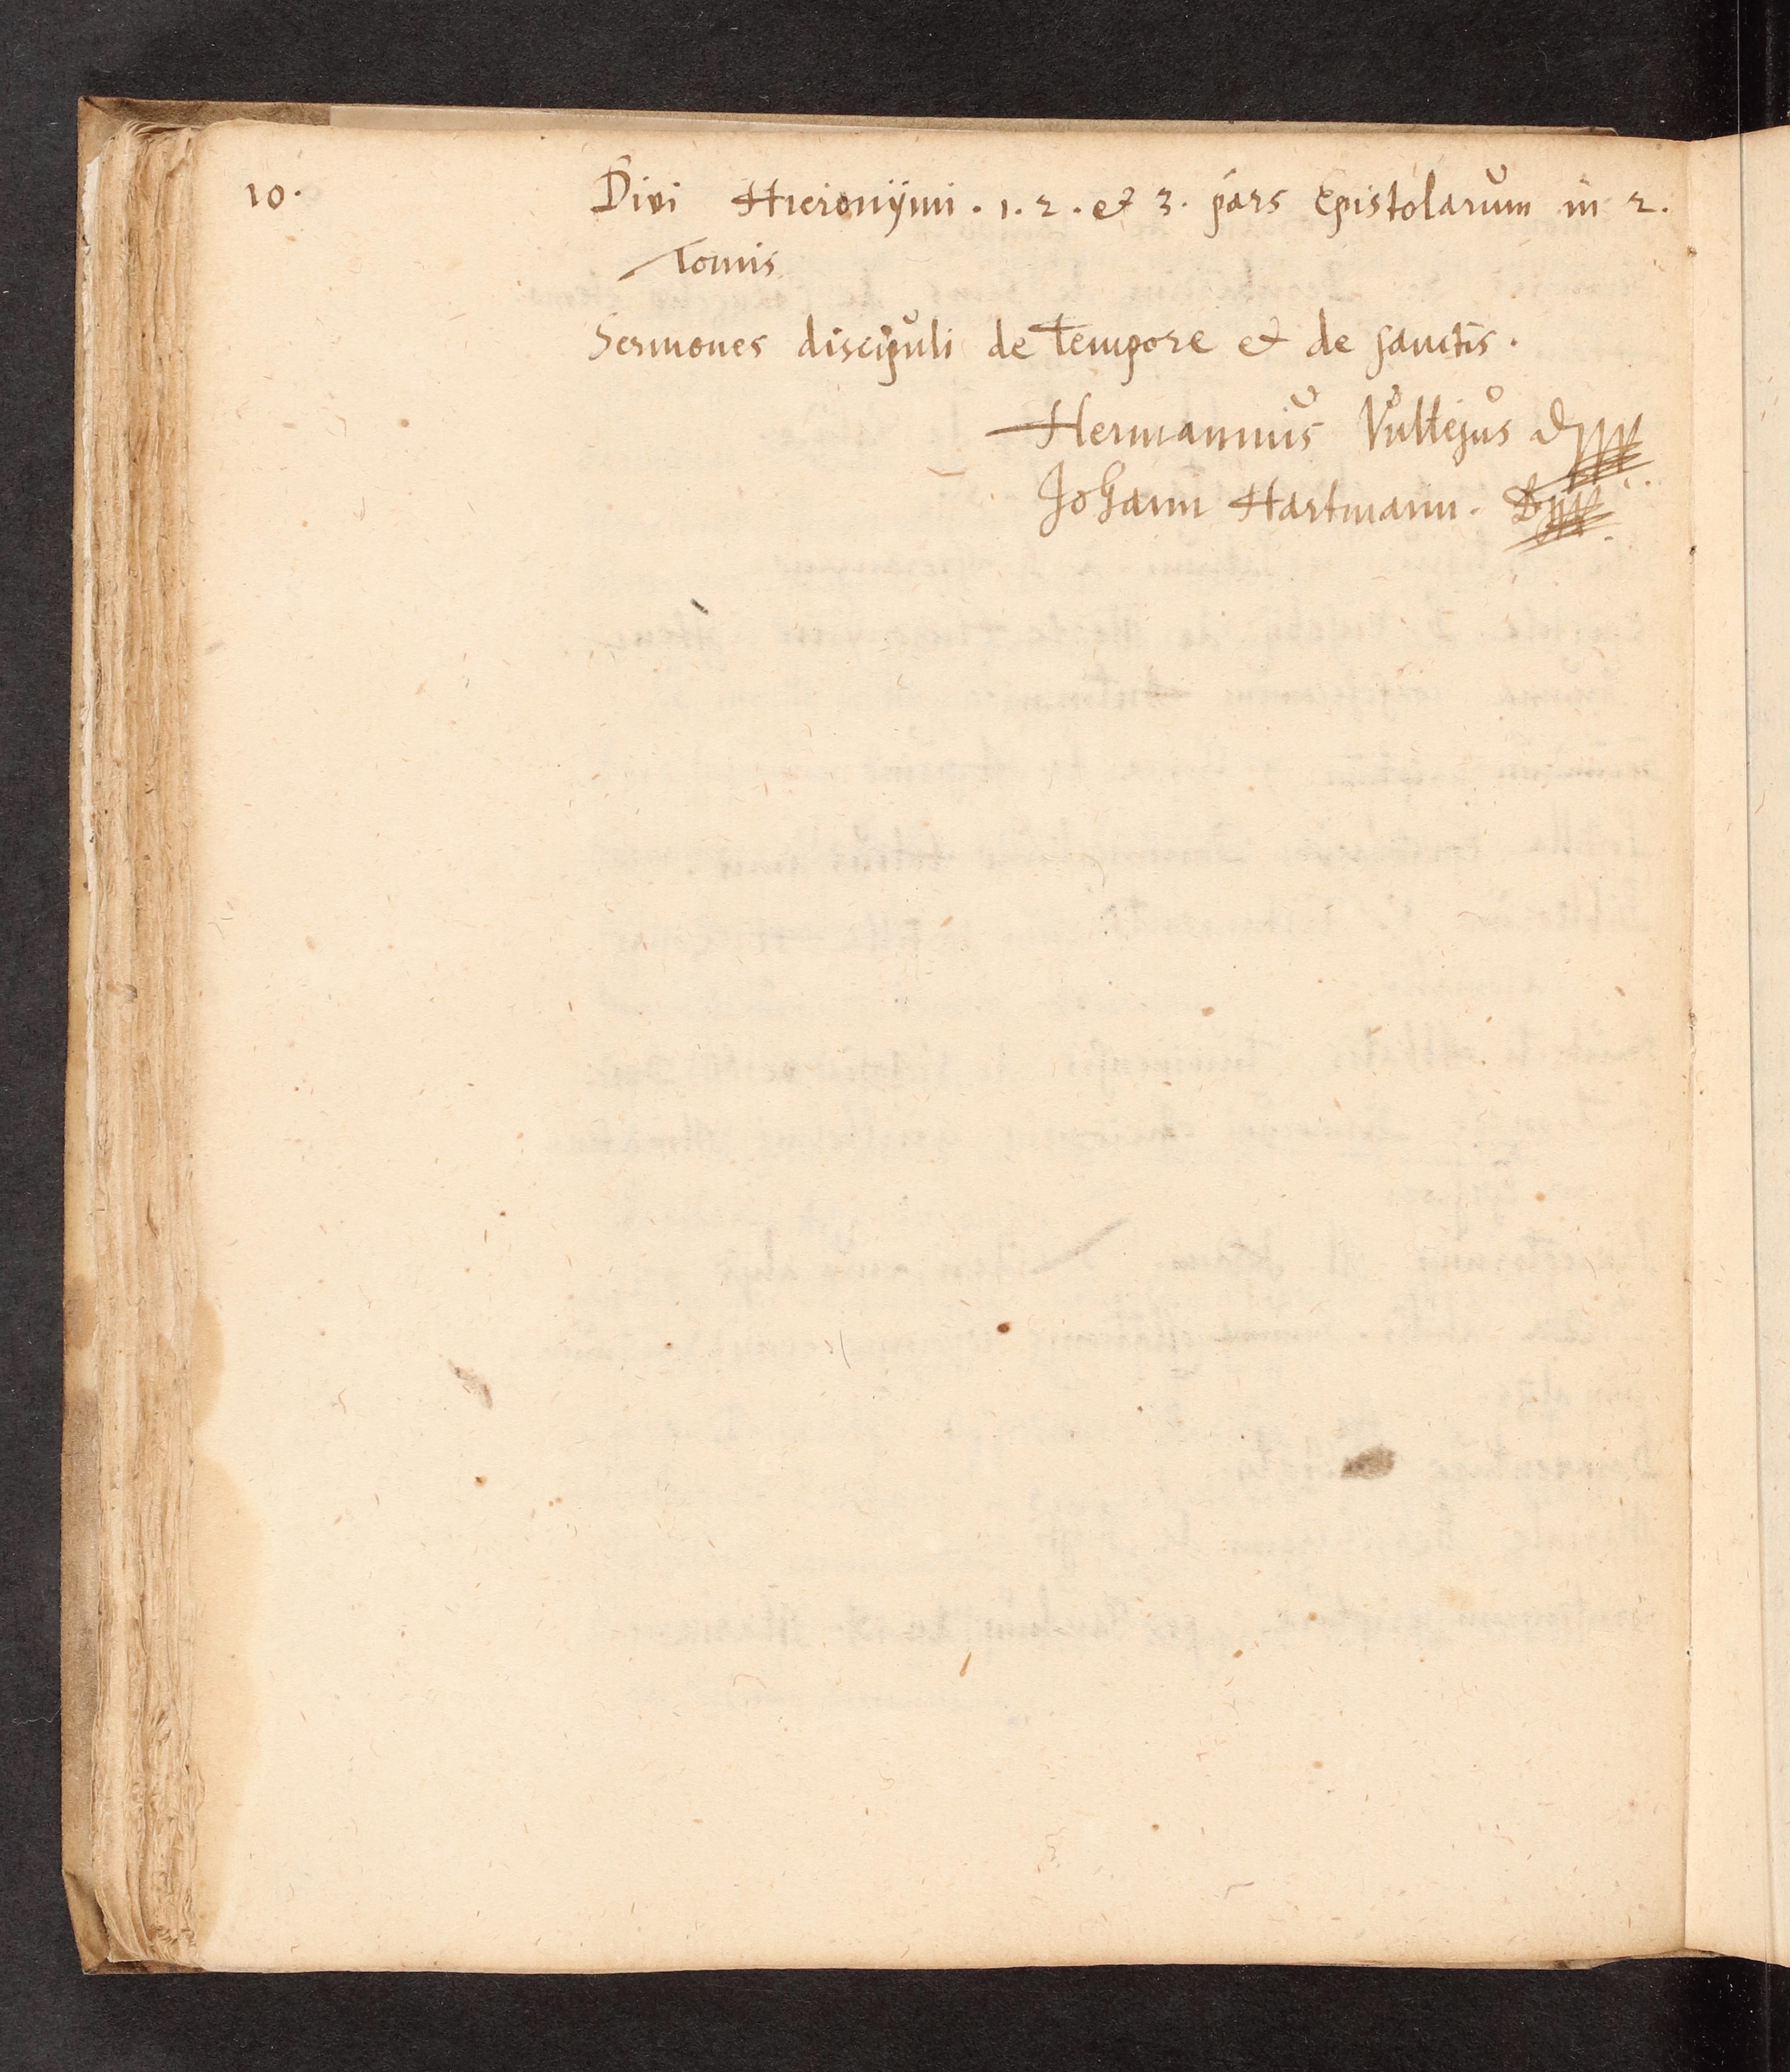 10.
Divi Hieronÿmi . 1. 2. et 3. pars Epistolarum in 2.
Tomis
Sermones discipuli de Tempore et de sanctis.
Hermannus Vultejus D
Johann Hartmann. D